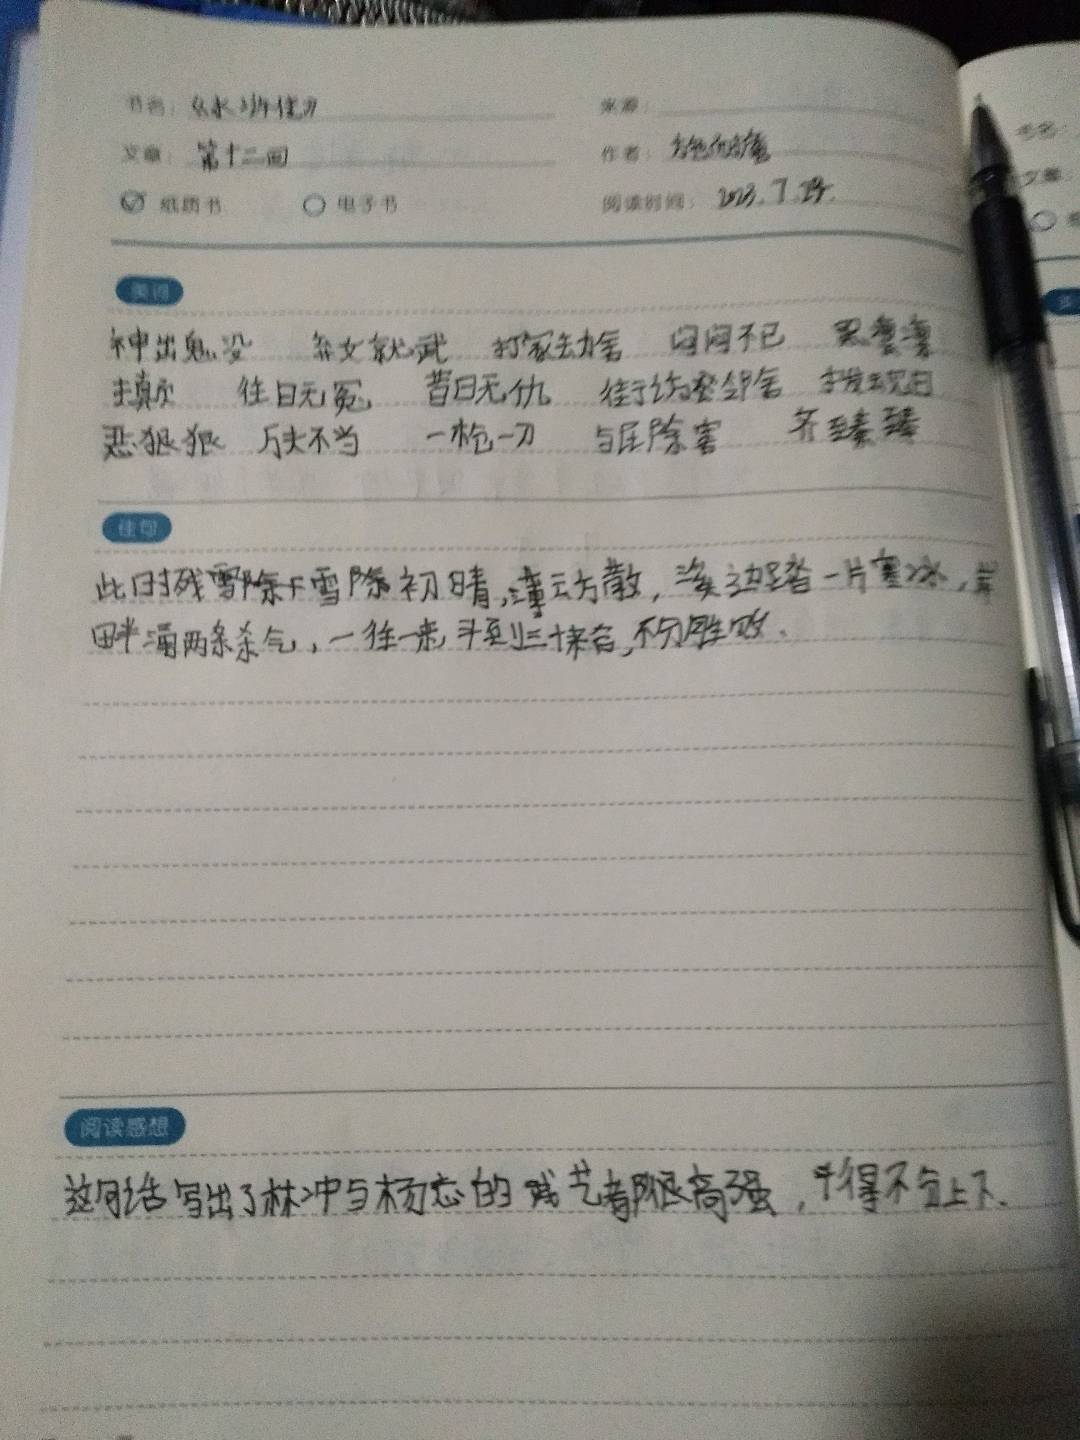 书名：《水浒传》
来源：
文章：第十二回
作者：施耐庵
纸质书 电子书 阅读时间：2023.7.24.
美词
神出鬼没 弃文就武 打家劫舍 闷闷不已
往日无冤 昔日无仇 街坊邻舍
恶狠狠 万夫不当 一枪一刀 与民除害 齐臻臻
佳句
此时残雪 雪除初晴，薄云方散，溪边踏一片寒冰，岸
畔涌两条杀气，一往一来，斗到三十来合，不分胜败。
阅读感想
这句话写出了林冲与杨志的武艺都很高强，斗得不分上下.